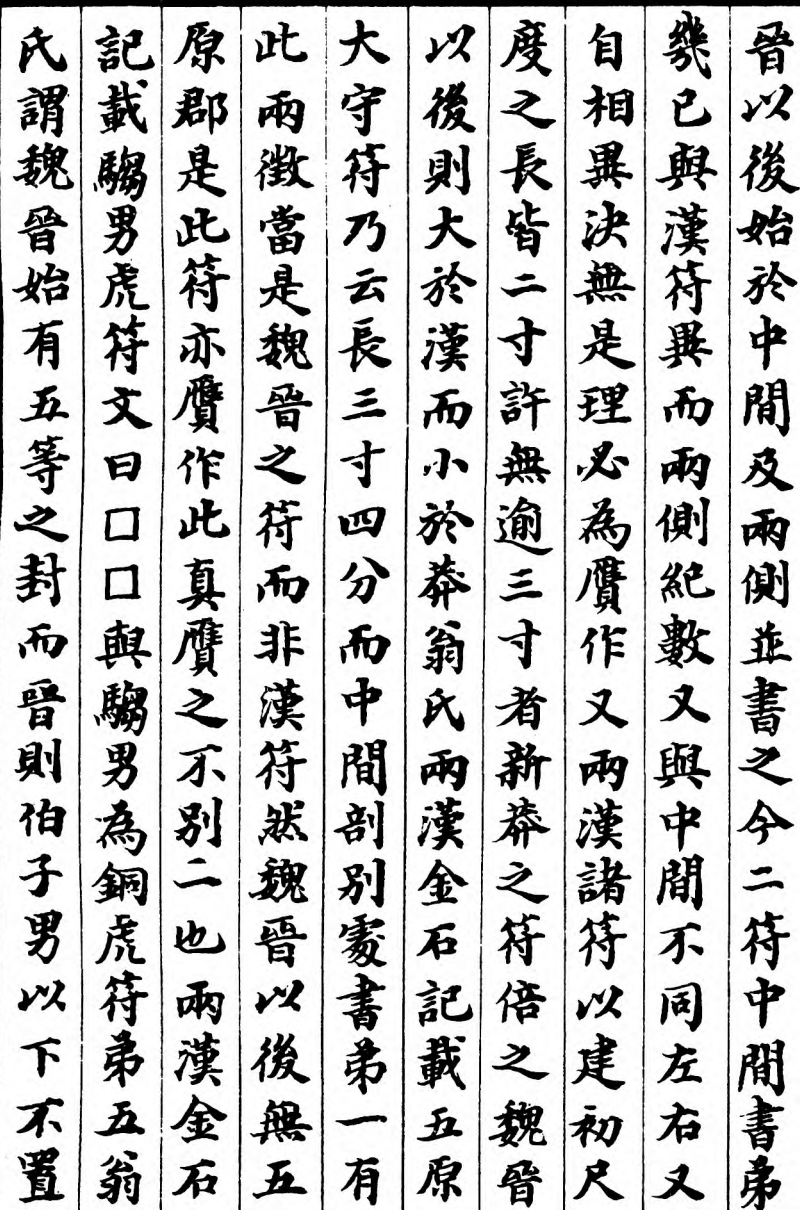 晉以後始於中間及兩側並書之今二符中間書弟
幾已與漢符異而兩側紀數又與中間不同左右又
自相異決無是理必為贋作又兩漢諸符以建初尺
度之長皆二寸許無逾三寸者新莽之符倍之魏晉
以後則大於漢而小於莽翁氏兩漢金石記載五原
大守符乃云長三寸四分而中間剖別處書弟一有
此兩徵當是魏晉之符而非漢符然魏晉以後無五
原郡是此符亦贋作此真贋之不別二也兩漢金石
記載騶男虎符文曰囗囗與騶男為銅虎符弟五翁
氏謂魏晉始有五等之封而晉則伯子男以下不置